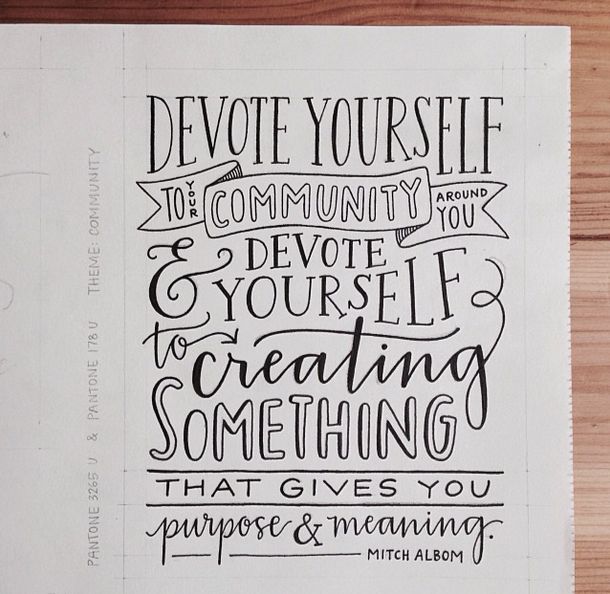 DEVOTE YOURSELF
TO YOUR COMMUNITY AROUND YOU
& DEVOTE
YOURSELF
to creating
SOMETHING
THAT GIVES YOU
purpose & meaning.
MITCH ALBOM
PANTONE 3265 U & PANTONE 178 U THEME: COMMUNITY